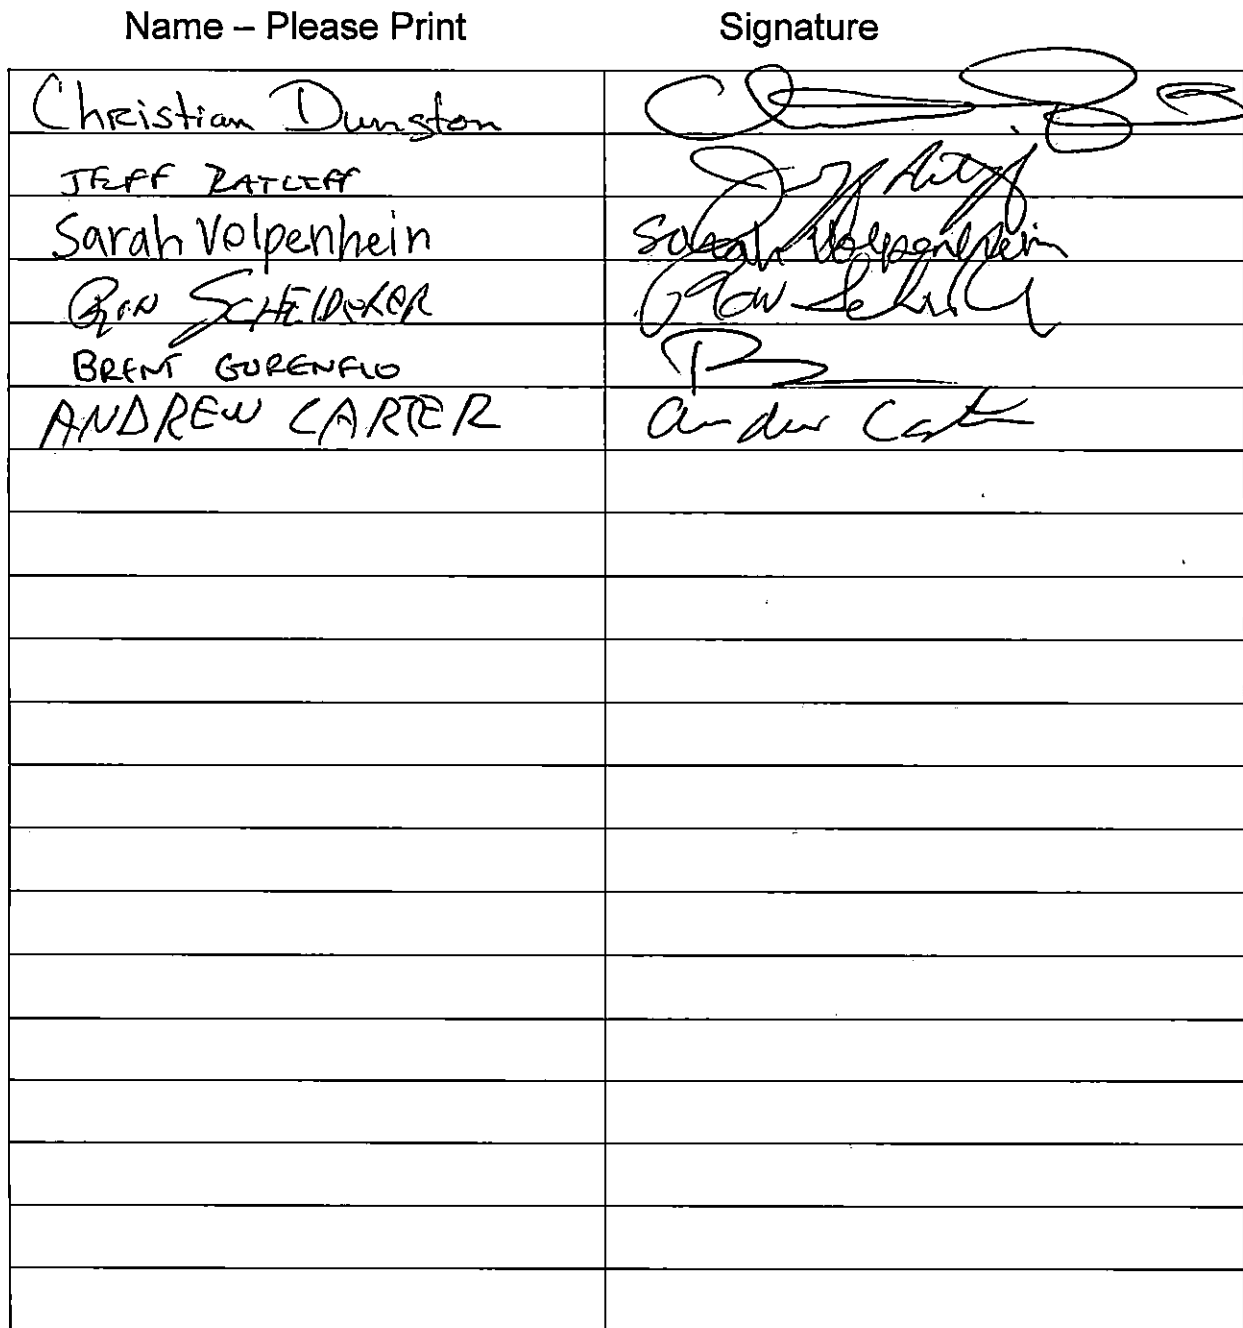 Name – Please Print Signature
Christian Dungton
JEFF RATCLIFF
Sarah Volpenhein Sarah Volpenhein
RON SCHEIDEKER RON
BRENT GURENFLO
ANDREW CARTER Andrew Carter